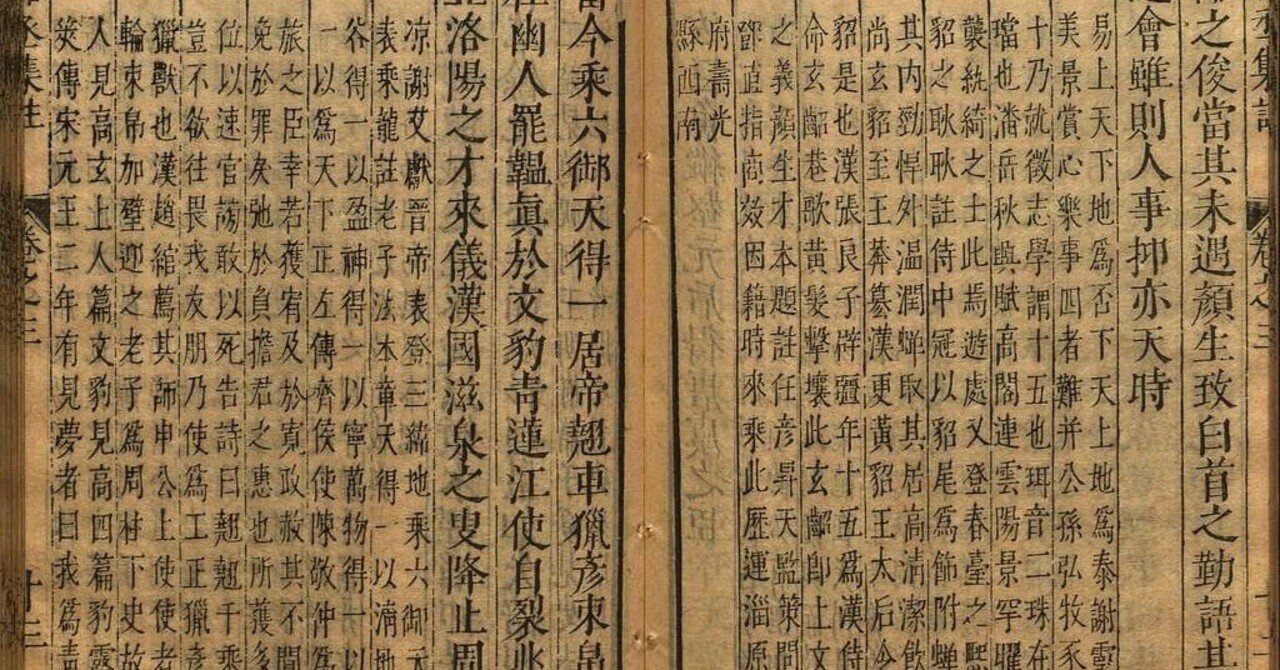 之俊當其未遇顏生致白首之勤語其
會雖則人事抑亦天時
易上天下地為否下天上地為泰謝靈
美景賞心樂事四者難并公孫弘牧豕
十乃就徵志學謂十五也珥音二珠在
璫也潘岳秋興賦高閣連雲陽景罕曜
襲紈綺之士此焉遊處又登春臺之熙
貂之耿耿註侍中冠以貂尾為飾附蟬
其内勁悍外温潤蟬取其居高清潔飲
尚玄貂至王莽簒漢更黃貂王太后令
貂是也漢張良子辟疆年十五為漢侍
命玄齠巷歌黃髮擊壤此玄齠卽上文
之義顏生才本題註任彦昇天監策問
鄧直指商效因籍時來乘此歷運淄原
府壽光
縣西南
今乘六御天得一居帝翹車獵彦束帛
幽人罷韞眞於文豹靑蓮江使自裂兆
洛陽之才來儀漢國滋泉之叟降止周
凉謝艾獻晉帝表登三緯地乘六御元
表乘龍註老子法本章天得一以清地
谷得一以盈神得一以寧萬物得一以
一以為天下正左傳齊侯使陳敬仲為
旅之臣幸若獲宥及於寬政赦其不閒
免於罪戾弛於負擔君之惠也所獲多
位以速官謗敢以死告詩曰翹翹千乘
豈不欲往畏我友朋乃使為工正獵彦
獵獸也漢趙綰薦其師申公上使使者
輪束帛加璧迎之老子為周柱下史故
人見高玄上人篇文豹見高四篇豹露
筴傳宋元王二年有見夢者曰我為靑
卷之三